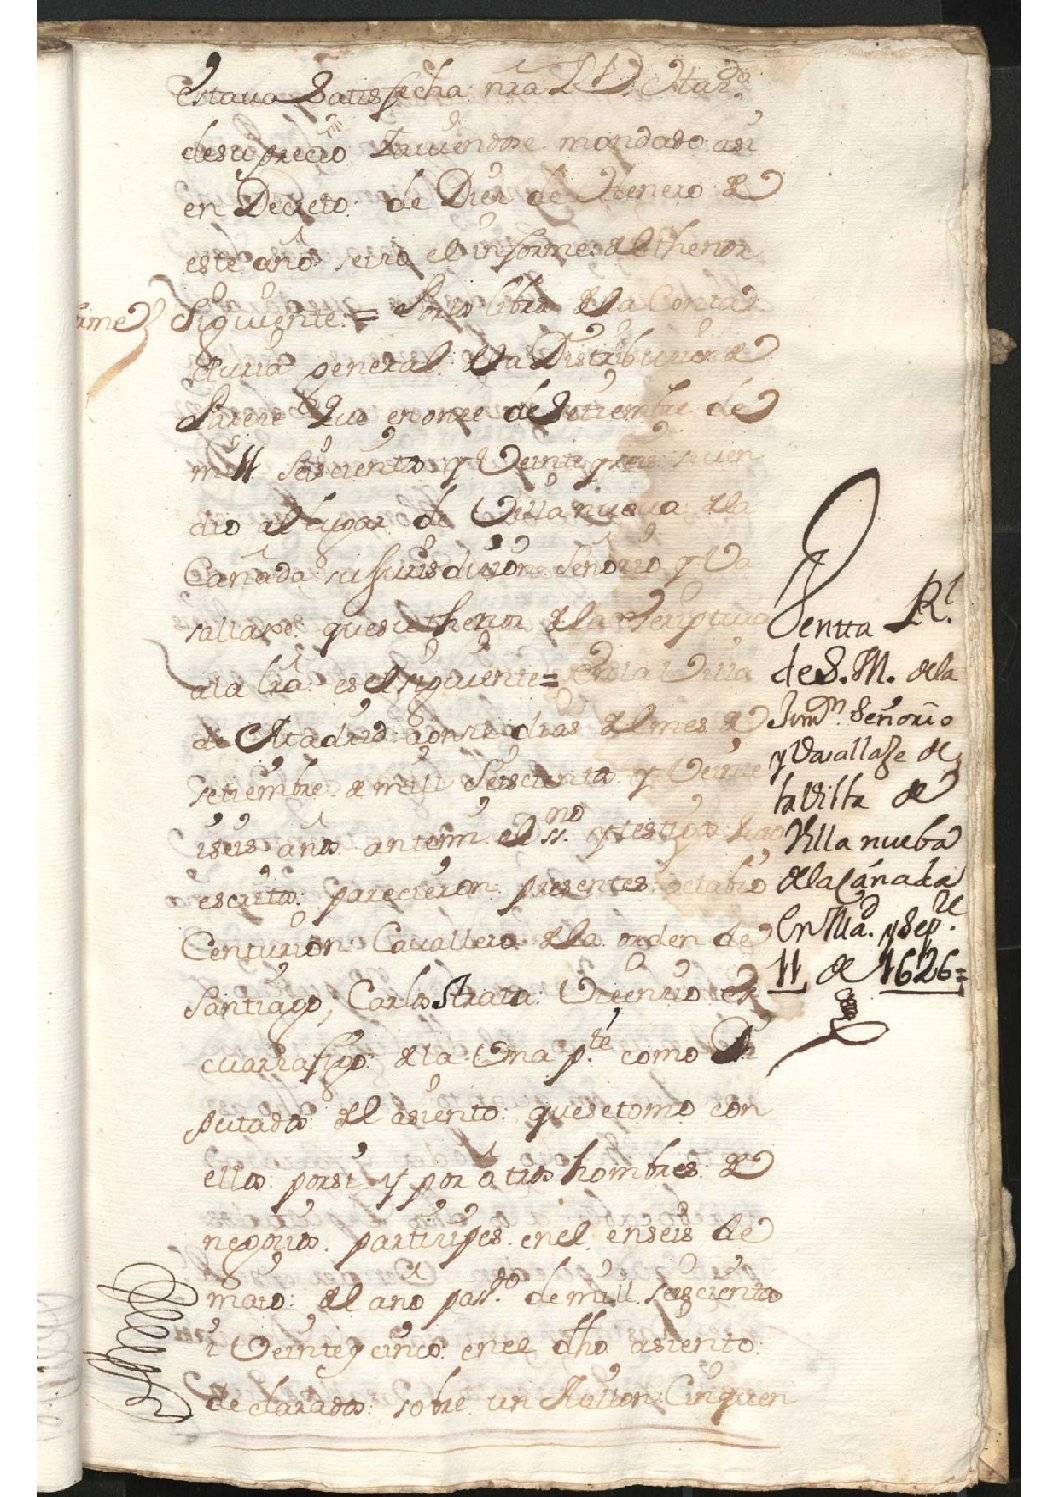 estaua Satisfecha nra Rl Hazda
desu precio Haviendose mandado asi
en Decreto de Diez de Henero de
este año seiza el informe del thenor
Siguiente = Por los libros de la Conta
duria general de la Distribucion de
Parece Que en onze de Setiembre de
mill seiscientos y Veinte y seis se ven
dio el lugar de Villanueva de la
Cañada su Jurisdicion Señorio y Va
sallaxe que su thenor de la escriptura
ala lra es el siguiente = En la Villa
de Madrid a onze dias del mes de
Setiembre de mill Seiscientos y Veinte
i seis años antemi el ssno y testigos Yuso
escritos parecieron presentes octabio
Centurion Cavallero de la orden de
Santiago, Carlos Strata Vicencio es
cuarzafigo de la Una pte como Di
putados del asiento que se tomo con
ellos por si y por otros hombres de
negozios participes en el en seis de
maio del año pasdo de mill seiscientos
i Veinte y cinco en el dho asiento
declarados sobre un Millon Cinquen
Ventta Rl
de S. M. dela
Jurmn Señorio
y Vasallaxe de
la Villa de
Villa nueba
de la Cañada
En Md y Sepre
11 de 1626=